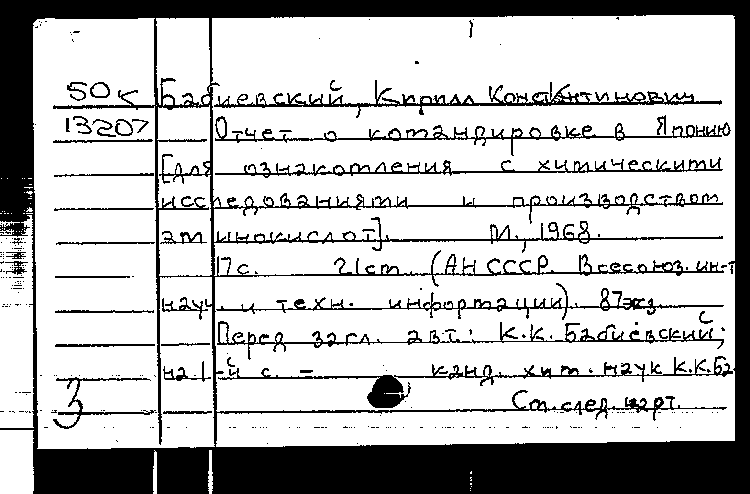 50к Бабиевский, Кирилл Константинович
13207 Отчет о командировке в Японию
[для ознакомления с химическими
исследованиями и производством
аминокислот]. М., 1968.
17с. 21см (АН СССР. Всесоюз. ин-т
науч. и техн. информации). 87экз.
Перед загл. авт.: К.К. Бабиевский;
на 1-й с. – канд. хим. наук К.К.Ба
3 См. след. карт.